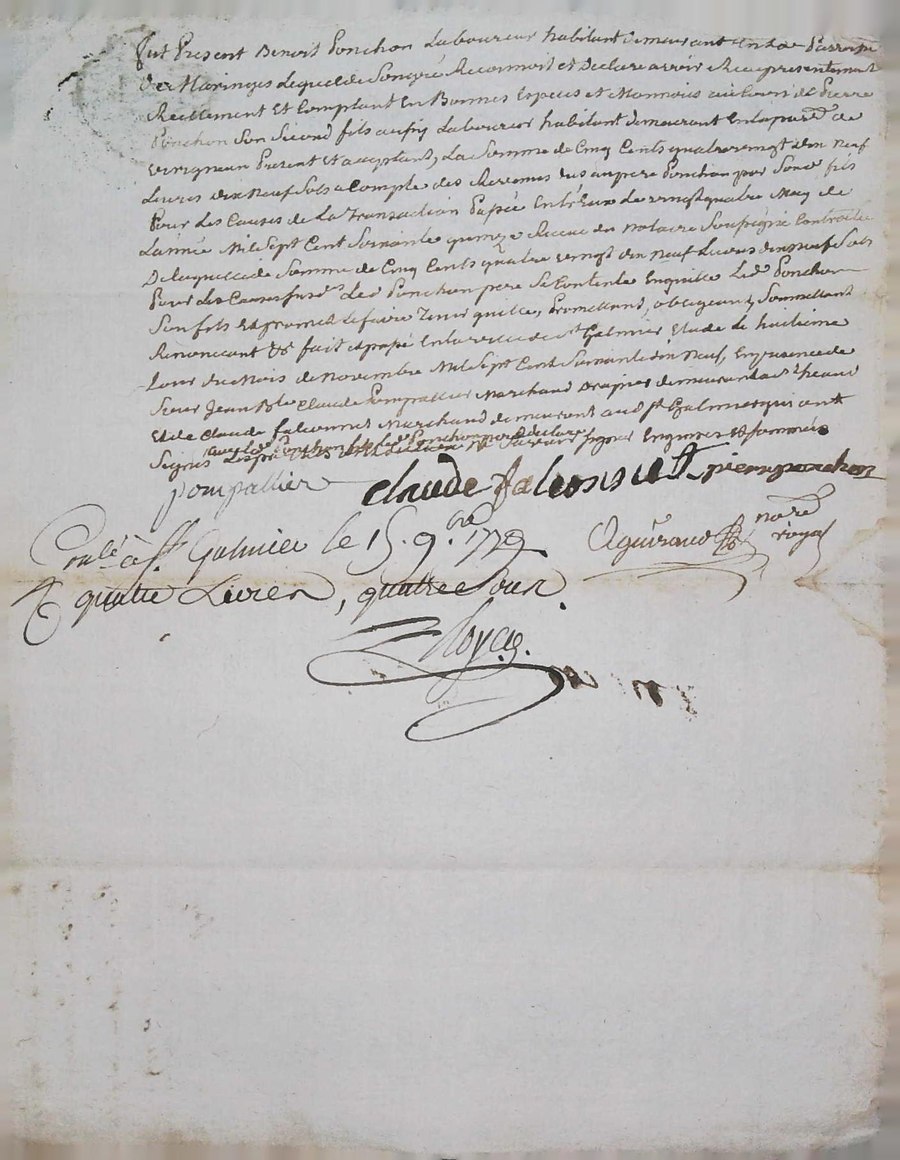 fut Present Benoit Ponchon Laboureur habitant demeurant en la Parroisse
de Maringes Lequel de Son gré Reconnoit et Declare avoir Reçu presentement
Reellement Et Comptant En Bonnes Especes et Monnoies au Cours de Pierre
Ponchon Son Second fils aussy Laboureur habitant demeurant En la par.e de
present Et acceptant, La Somme de Cinq Cents quatre vingt dix neuf
Livres dix Neuf Sols a Compte des au pere Ponchon par Son fils
Pour Les Causes de La Transaction Passée Entre Eux Le vingt quatre May de
L'année Mil Sept Cent Soixante quinze Receue du notaire Soussigné Controllée
De laquelle de Somme de Cinq Cents quatre vingt dix neuf Livres dix neuf Sols
Pour Les Causes susd.s Led. Ponchon pere Se Contente Enquitte Led. Ponchon
Son fils Et promet Le faire Tenir quitte, Promettant, obligeant, Soumettant
Renoncant &c fait Et passé En la ville de S.t Galmier Etude Le huitieme
Jour du Mois de Novembre Mil Sept Cent Soixante dix Neuf, En presence de
Sieur Jean B.te Claude Pompallier Marchand Drapier demeurant a
Et de Claude falconnet Marchand demeurant aud. S.t Galmier qui ont
Signés avec led. Ponchon fils Led. Ponchon pere declare ne Savoir Signer Enquis Et Sommés
pompallier Claude falconnet pierre ponchon
Con.lé à S.t Galmier le 15. 9.bre 1779
Aguiraud no.re royal
R quatre Livres, quatre Sous.